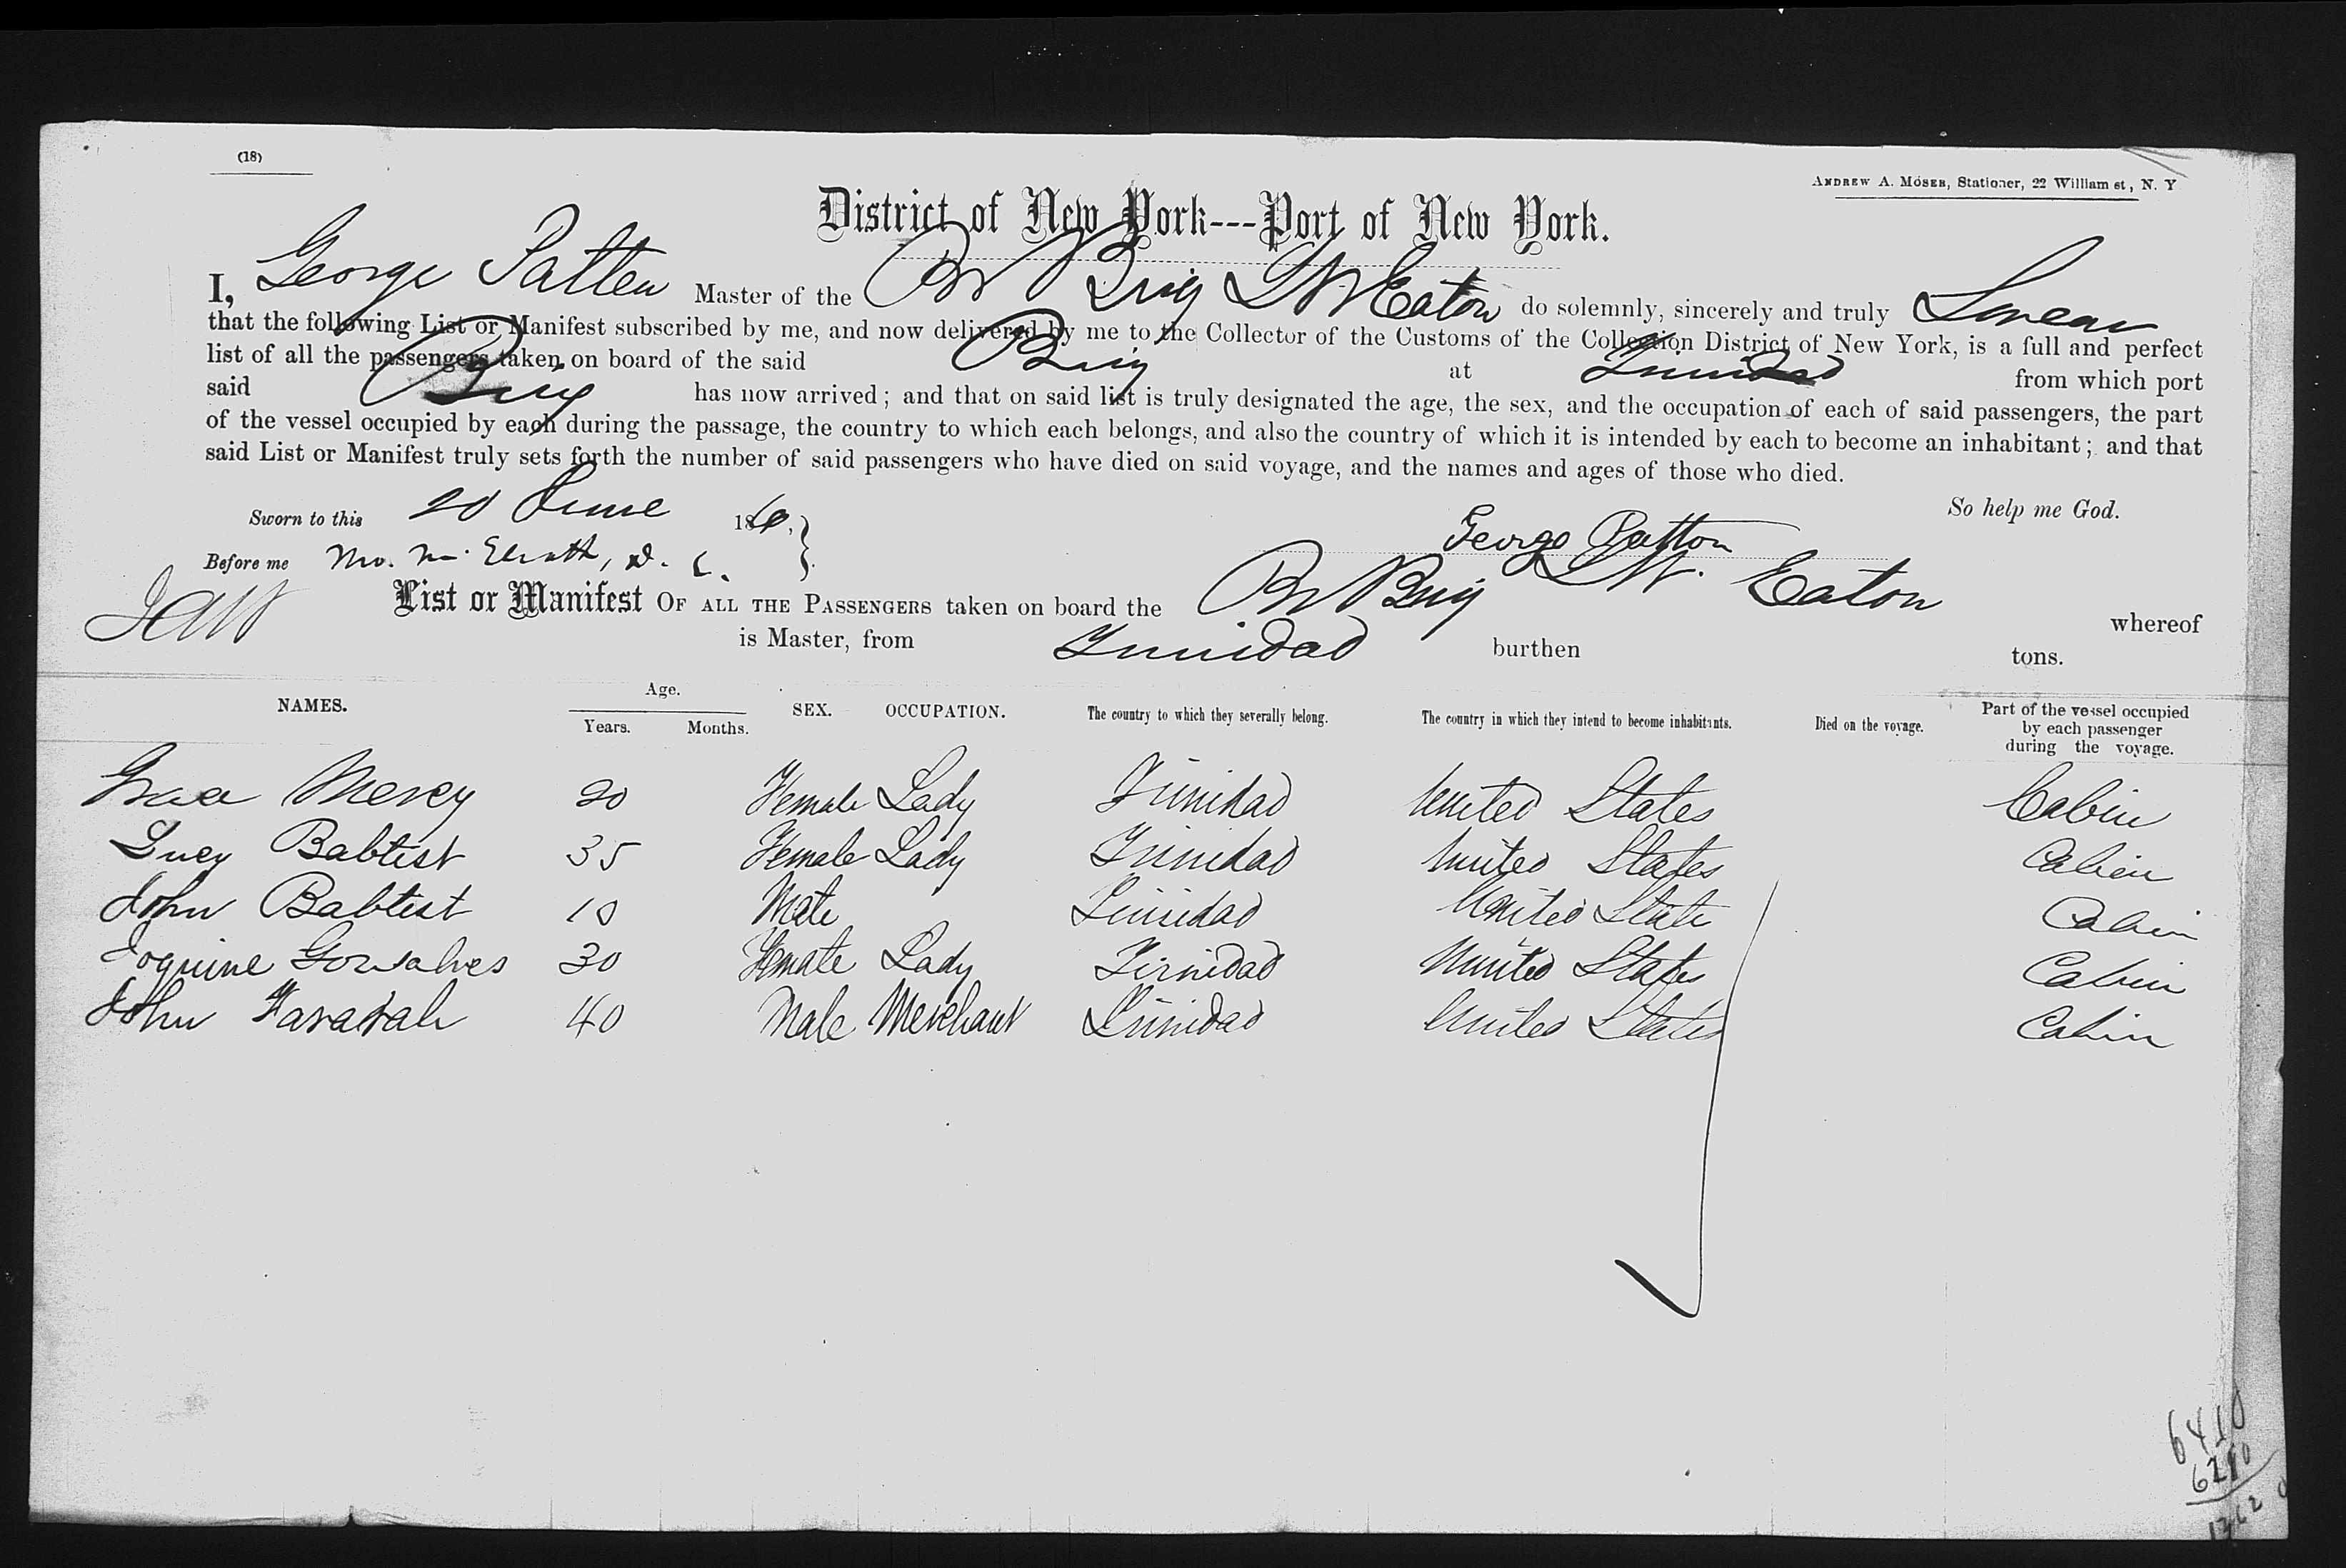 (18)
ANDREW A. MOSER, Stationer, 22 William st, N. Y
District of New York---Port of New York.
I, George Patten Master of the Br Brig L W Eaton do solemnly, sincerely and truly Swear
that the following List or Manifest subscribed by me, and now delivered by me to the Collector of the Customs of the Collection District of New York, is a full and perfect
list of all the passengers taken on board of the said Brig at Trinidad from which port
said Brig has now arrived; and that on said list is truly designated the age, the sex, and the occupation of each of said passengers, the part
of the vessel occupied by each during the passage, the country to which each belongs, and also the country of which it is intended by each to become an inhabitant; and that
said List or Manifest truly sets forth the number of said passengers who have died on said voyage, and the names and ages of those who died.
So help me God.
Sworn to this 20 June 186
George Patton
Before me
List or Manifest OF ALL THE PASSENGERS taken on board the Br Brig L W. Eaton whereof
is Master, from Trinidad burthen tons.
NAMES. Age. Years. Months. SEX. OCCUPATION. The country to which they severally belong. The country in which they intend to become inhabitants. Died on the voyage. Part of the vessel occupied by each passenger during the voyage.
Grace Mercy 20 Female Lady Trinidad United States Cabin
Lucy Babtist 35 Female Lady Trinidad United States Cabin
John Babtist 10 Male Trinidad United State Cabin
Joquine Gonsalves 30 Female Lady Trinidad United States Cabin
John 40 Male Merchant Trinidad United States Cabin